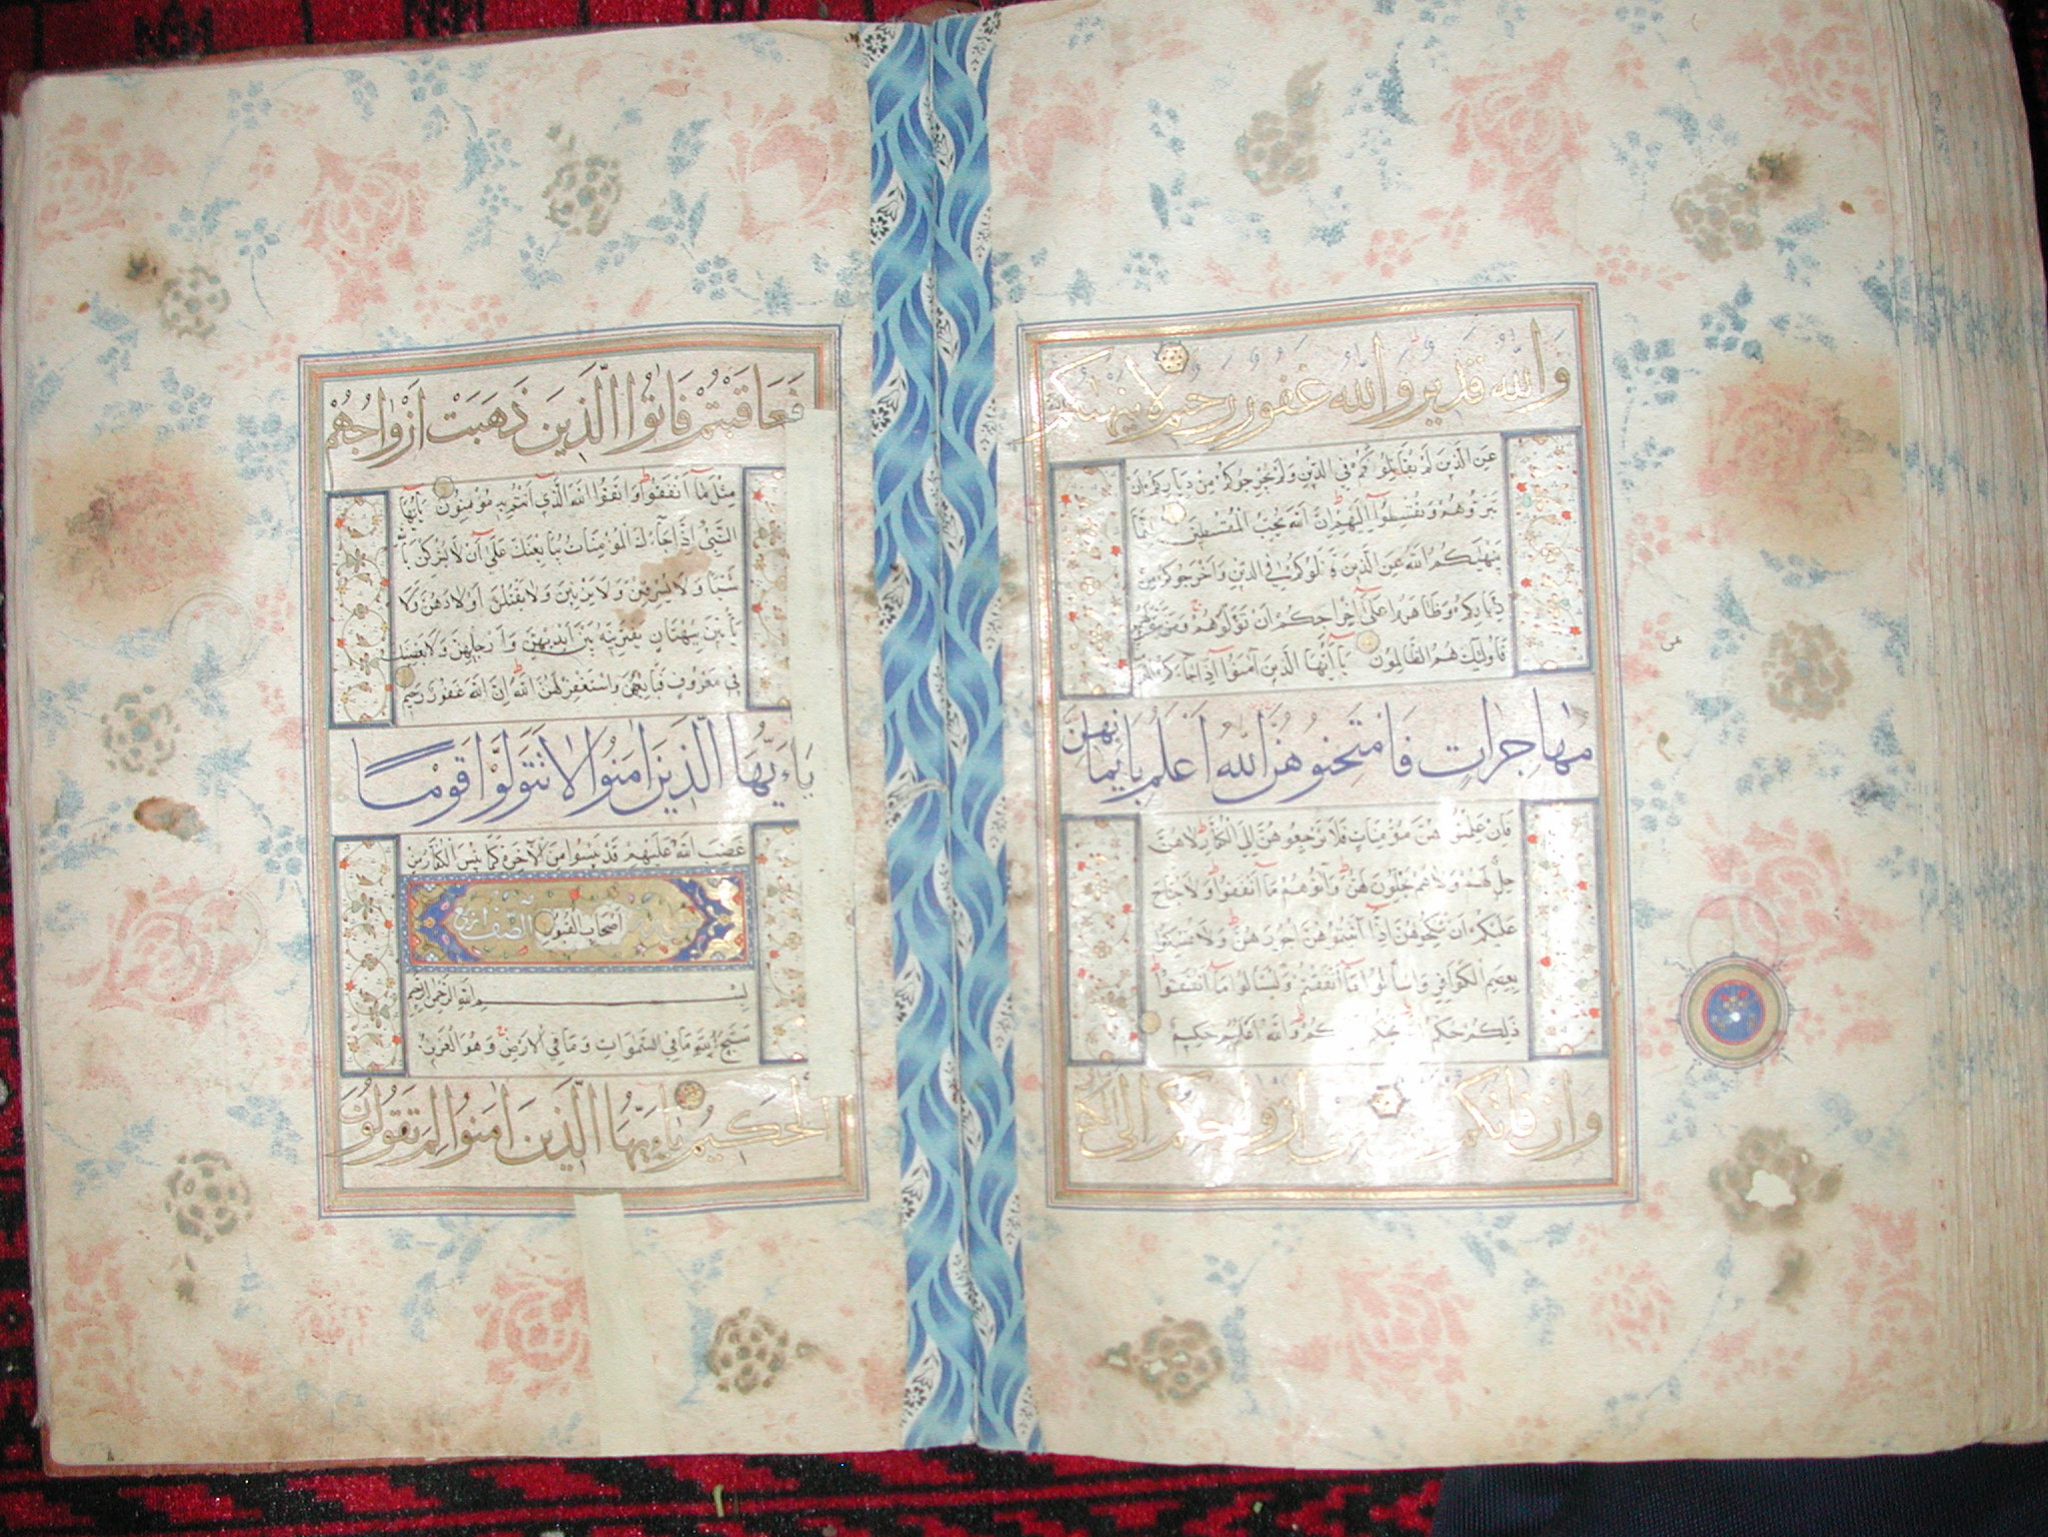 وَاللَّهُ قَدِيرٌ وَاللَّهُ غَفُورٌ رَحِيمٌ لَا يَنْهَاكُمُ
عَنِ الَّذِينَ لَمْ يُقَاتِلُوكُمْ فِي الدِّينِ وَلَمْ يُخْرِجُوكُمْ مِنْ دِيَارِكُمْ أَنْ
تَبَرُّوهُمْ وَتُقْسِطُوا إِلَيْهِمْ إِنَّ اللَّهَ يُحِبُّ الْمُقْسِطِينَ إِنَّمَا
يَنْهٰيكُمُ اللَّهُ عَنِ الَّذِينَ قَاتَلُوكُمْ فِي الدِّينِ وَأَخْرَجُوكُمْ مِنْ
دِيَارِكُمْ وَظَاهَرُوا عَلَى إِخْرَاجِكُمْ أَنْ تَوَلَّوْهُمْ وَمَنْ يَتَوَلَّهُمْ
فَأُولَئِكَ هُمُ الظَّالِمُونَ يَا أَيُّهَا الَّذِينَ آمَنُوا إِذَا جَاءَكُمُ
مُهَاجِرَاتٍ فَامْتَحِنُوهُنَّ اللَّهُ أَعْلَمُ بِإِيمَانِهِنَّ
فَإِنْ عَلِمْتُمُوهُنَّ مُؤْمِنَاتٍ فَلَا تَرْجِعُوهُنَّ إِلَى الْكُفَّارِ لَا هُنَّ
حِلٌّ لَهُمْ وَلَا هُمْ يَحِلُّونَ لَهُنَّ وَآتُوهُمْ مَا أَنْفَقُوا وَلَا جُنَاحَ
عَلَيْكُمْ أَنْ تَنْكِحُوهُنَّ إِذَا آتَيْتُمُوهُنَّ أُجُورَهُنَّ وَلَا تُمْسِكُوا
بِعِصَمِ الْكَوَافِرِ وَاسْأَلُوا مَا أَنْفَقْتُمْ وَلْيَسْأَلُوا مَا أَنْفَقُوا
ذَلِكُمْ حُكْمُ يَحْكُمُ وَاللَّهُ عَلِيمٌ حَكِيمٌ
وَإِنْ فَاتَكُمْ أَزْوَاجِكُمْ إِلَى
فَعَاقَبْتُمْ فَاٰتُوا الَّذِينَ ذَهَبَتْ أَزْوَاجُهُمْ
مِثْلَ مَا أَنْفَقُوا وَاتَّقُوا اللَّهَ الَّذِي أَنْتُمْ بِهِ مُؤْمِنُونَ يَا أَيُّهَا
النَّبِيُّ إِذَا جَاءَكَ الْمُؤْمِنَاتُ يُبَايِعْنَكَ عَلَى أَنْ لَا يُشْرِكْنَ بِاللَّهِ
شَيْئًا وَلَا يَسْرِقْنَ وَلَا يَزْنِينَ وَلَا يَقْتُلْنَ أَوْلَادَهُنَّ وَلَا
يَأْتِينَ بِبُهْتَانٍ يَفْتَرِينَهُ بَيْنَ أَيْدِيهِنَّ وَأَرْجُلِهِنَّ وَلَا يَعْصِينَكَ
فِي مَعْرُوفٍ فَبَايِعْهُنَّ وَاسْتَغْفِرْ لَهُنَّ اللَّهَ إِنَّ اللَّهَ غَفُورٌ رَحِيمٌ
يَا أَيُّهَا الَّذِينَ آمَنُوا لَا تَتَوَلَّوْا قَوْمًا
غَضِبَ اللَّهُ عَلَيْهِمْ قَدْ يَئِسُوا مِنَ الْآخِرَةِ كَمَا يَئِسَ الْكُفَّارُ مِنْ
أَصْحَابِ الْقُبُورِ
بِسْمِ اللَّهِ الرَّحْمٰنِ الرَّحِيمِ
سَبَّحَ لِلَّهِ مَا فِي السَّمَوَاتِ وَمَا فِي الْأَرْضِ وَهُوَ الْعَزِيزُ
الْحَكِيمُ يَا أَيُّهَا الَّذِينَ آمَنُوا لِمَ تَقُولُونَ